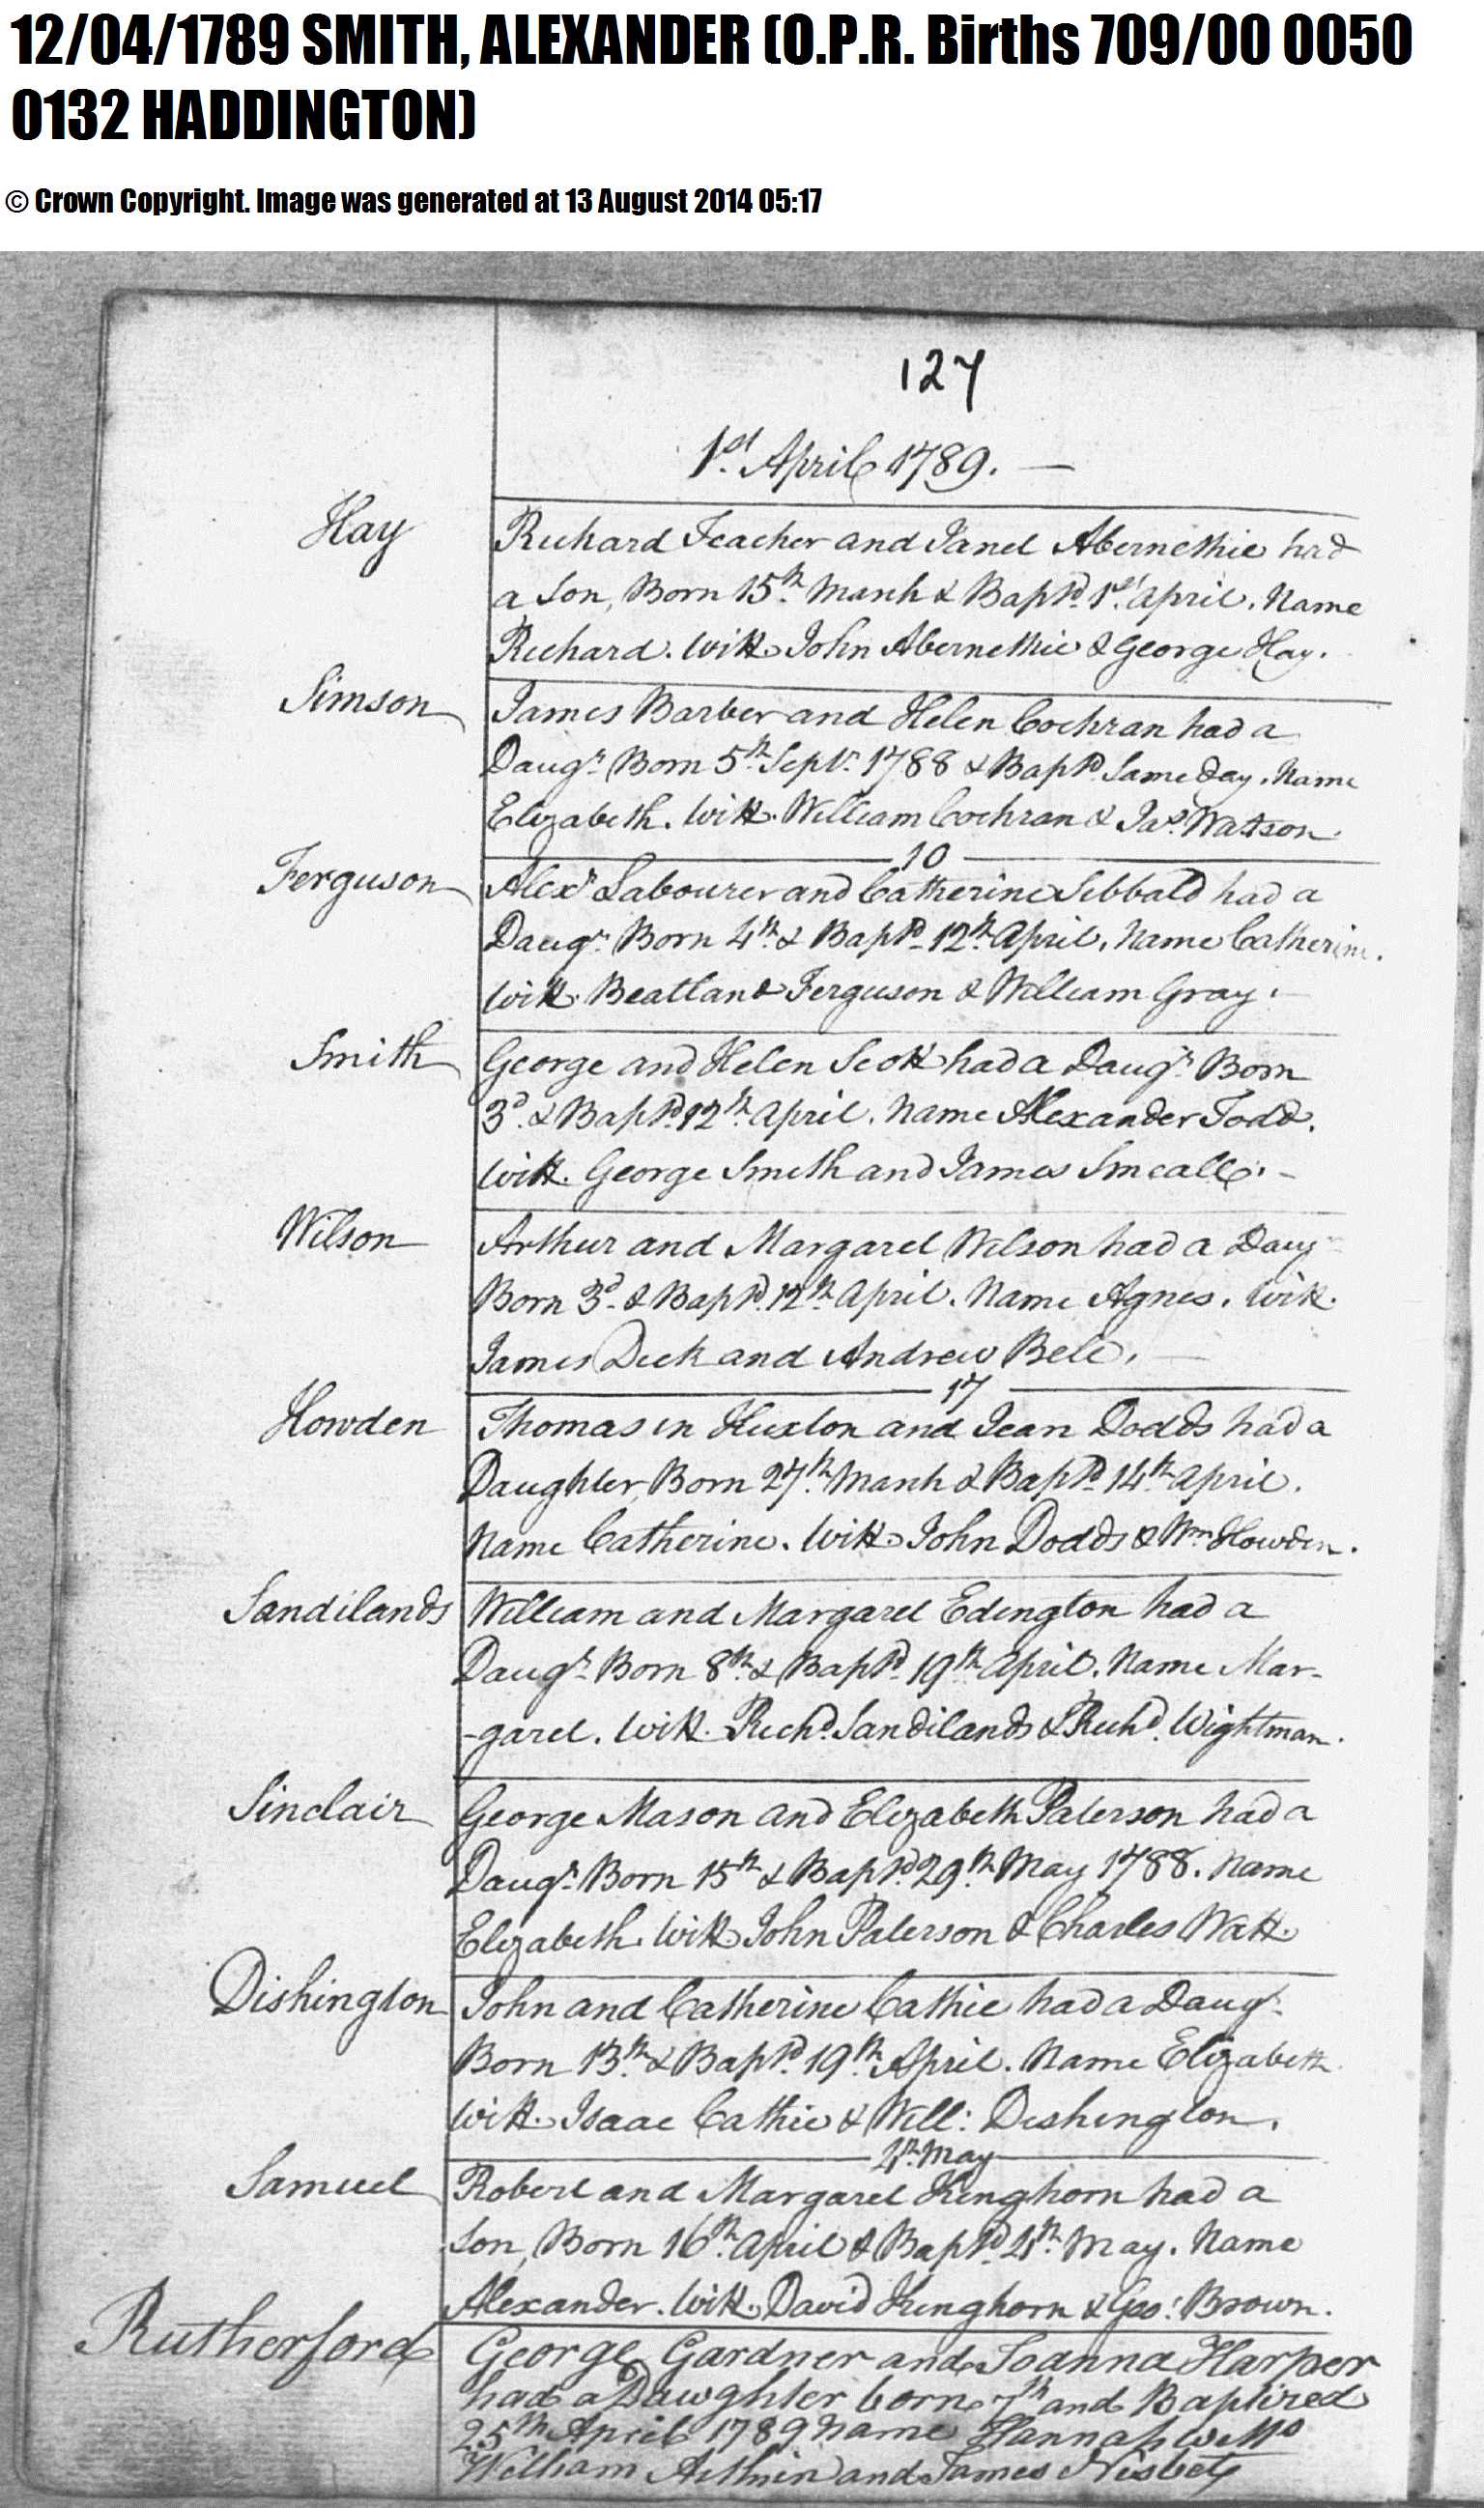 12/04/1789 SMITH, ALEXANDER (O.P.R. Births 709/00 0050
0132 HADDINGTON)
© Crown Copyright. Image was generated at 13 August 2014 05:17
127
1st April 1789. —
Hay
Richard Teacher and Janet Abernethie had
a Son, Born 15th March & Bapt'd 1st April. Name
Richard. Witt. John Abernethie & George Hay.
Simson
James Barber and Helen Cochran had a
Daugr Born 5th Septr 1788 & Bapt'd Same day. Name
Elizabeth. Witt. William Cochran & Jas. Watson.
10
Ferguson
Alexr Labourer and Catherine Sibbald had a
Daugr Born 4th & Bapt'd 12th April. Name Catherine.
Witt. Beatland Ferguson & William Gray.
Smith
George and Helen Scott had a Daugr Born
3d & Bapt'd 12th April. Name Alexander Todd.
Witt. George Smith and James Smeall. –
Wilson
Arthur and Margaret Wilson had a Daugr
Born 3d & Bapt'd 12th April. Name Agnes. Witt.
James Dick and Andrew Bell. —
17
Howden
Thomas in Huxton and Jean Dodds had a
Daughter Born 27th March & Bapt'd 14th April.
Name Catherine. Witt. John Dodds & Wm Howden.
Sandilands
William and Margaret Edington had a
Daugr Born 8th & Bapt'd 19th April. Name Mar-
-garet. Witt. Richd Sandilands & Richd Wightman.
Sinclair
George Mason and Elizabeth Paterson had a
Daugr Born 15th & Bapt'd 29th May 1788. Name
Elizabeth. Witt. John Paterson & Charles Watt.
Dishington
John and Catherine Cathie had a Daugr
Born 13th & Bapt'd 19th April. Name Elizabeth
Witt. Isaac Cathie & Will: Dishington.
May
Samuel
Robert and Margaret Kinghorn had a
Son, Born 16th April & Bapt'd May. Name
Alexander. Witt. David Kinghorn & Geo: Brown.
Rutherford
George Gardner and Joanna Harper
had a Dawghter born 7th and Baptized
25th April 1789 name Hannah
William and James Nisbet